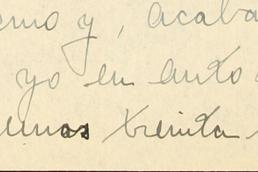 emo y, acaba
yo en auto
unos treinta